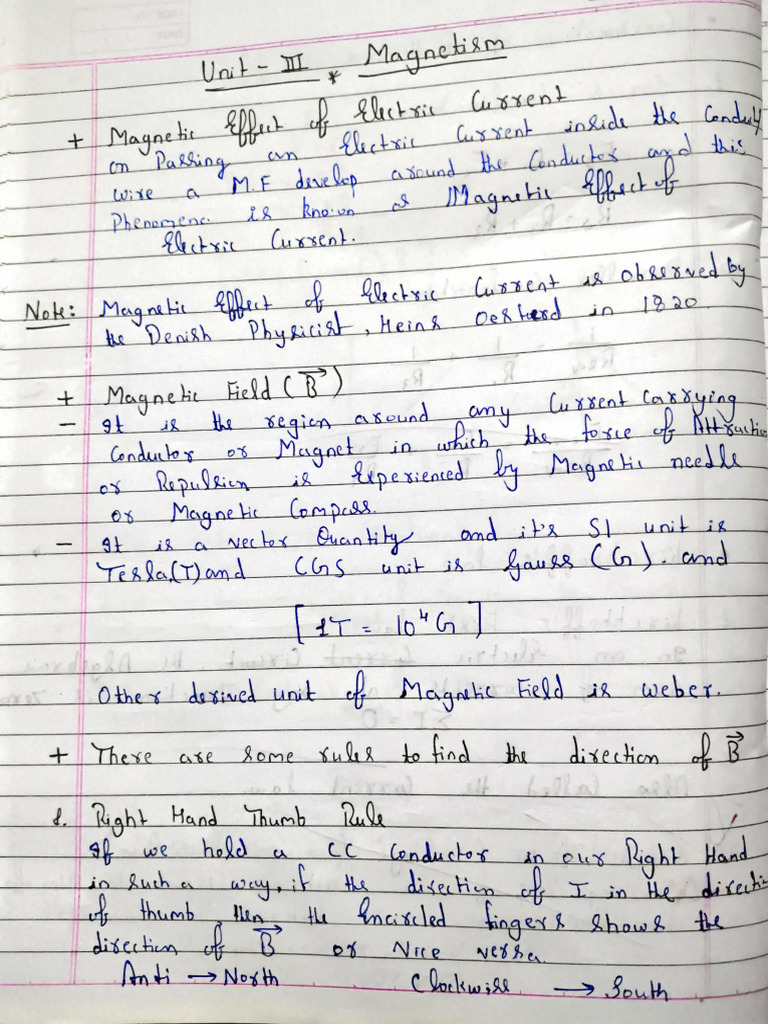 Unit - III * Magnetism
+ Magnetic Effect of Electric Current
on Passing an Electric Current inside the Conduct
wire a M.F develop around the Conductor and this
Phenomena is known as Magnetic Effect of
Electric Current.
Note: Magnetic Effect of Electric Current is observed by
the Denish Physicist, Heins Oesterd in 1820
+ Magnetic Field (B⃗)
- It is the region around any Current Carrying
Conductor or Magnet in which the force of Attractio
or Repulsion is Experienced by Magnetic needle
or Magnetic Compass.
- It is a vector Quantity and it's SI unit is
Tesla(T) and CGS unit is Gauss (G). and
[1T = 10⁴G]
Other derived unit of Magnetic Field is weber.
+ There are some rules to find the direction of B⃗
1. Right Hand Thumb Rule
If we hold a CC Conductor in our Right Hand
in such a way, if the direction of I in the directi
of thumb, then the Encircled fingers shows the
direction of B⃗ or Vice versa.
Anti → North Clockwise → South